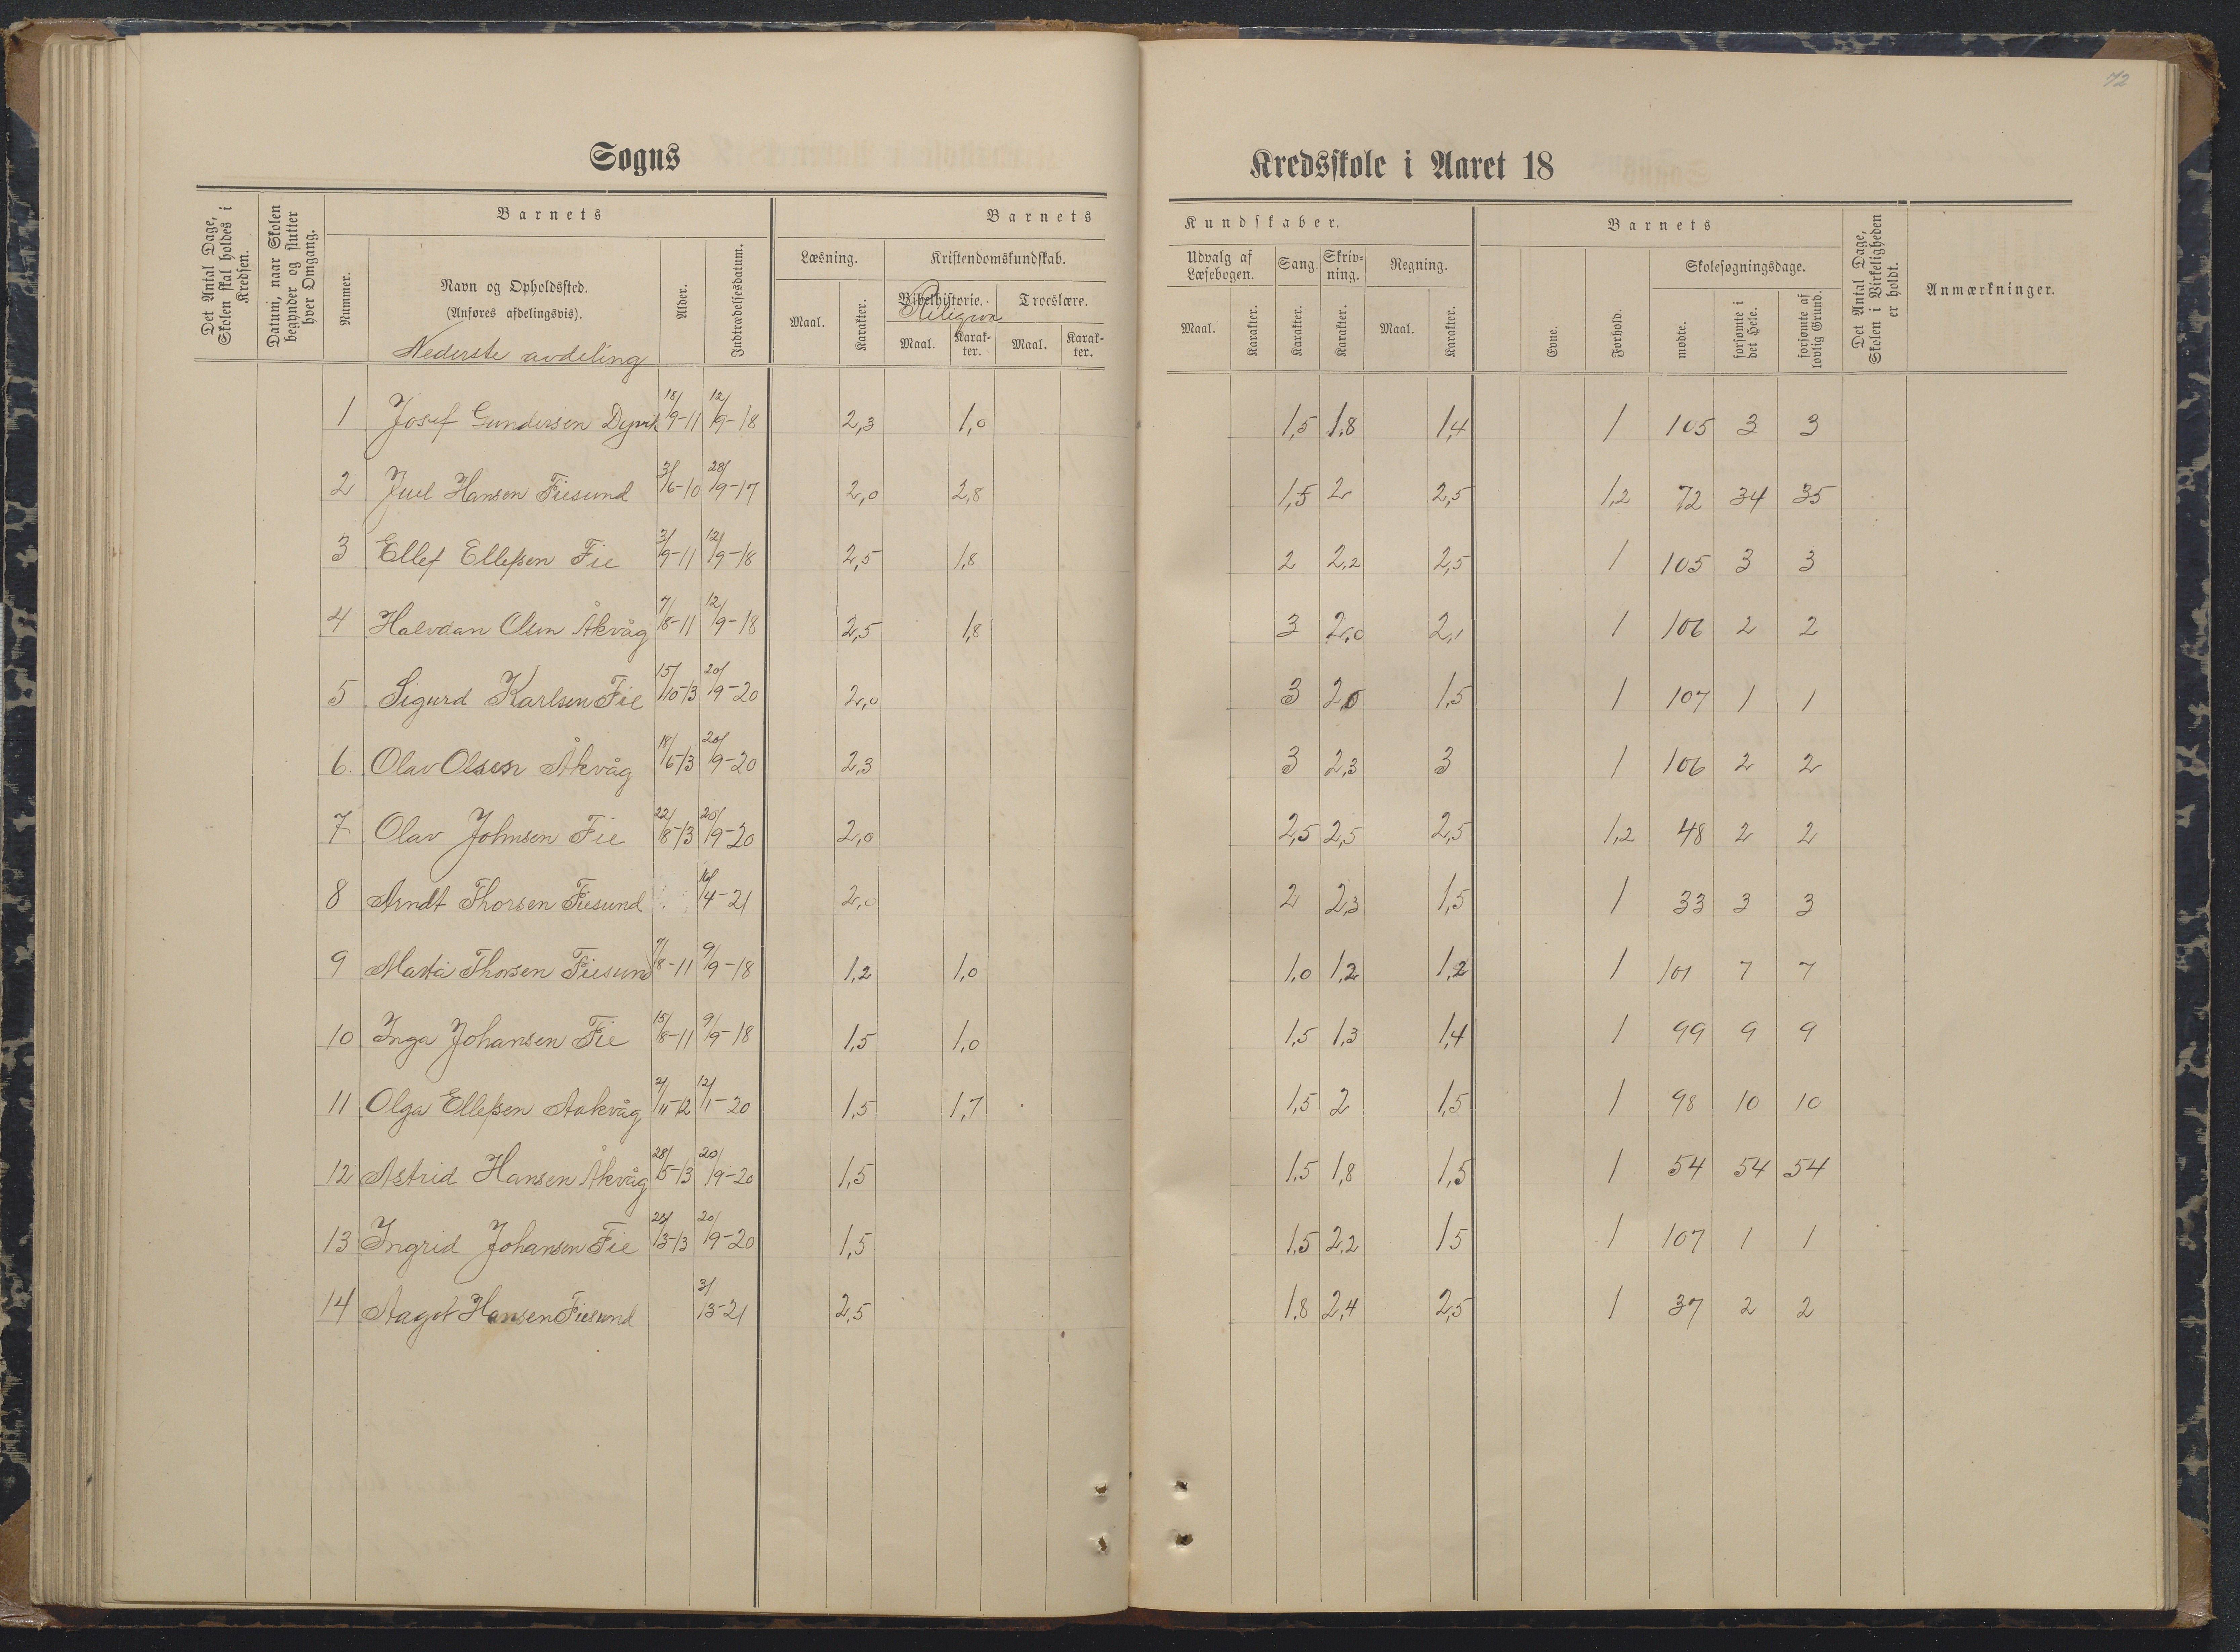 72
Sogns Kredsskole i Aaret 18
Det Antal Dage, Skolen skal holdes i Kredsen.
Datum, naar Skolen begynder og slutter hver Omgang.
Barnets
Nummer.
Navn og Opholdssted.
(Anføres afdelingsvis).
Nederste avdeling
Alder.
Indtrædelsesdatum.
Barnets Kundskaber.
Læsning.
Maal. Karakter.
Kristendomskundskab.
Bibelhistorie. Troeslære.
Religion
Maal. Karakter. Maal. Karakter.
Udvalg af Læsebogen.
Maal. Karakter.
Sang. Karakter.
Skrivning. Karakter.
Regning.
Maal. Karakter.
Barnets
Evne. Forhold.
Skolesøgningsdage.
mødte. forsømte i det Hele. forsømte af lovlig Grund.
Det Antal Dage, Skolen i Virkeligheden er holdt.
Anmærkninger.
1 Josef Gundersen Dypvik 18/9-11 12/9-18 2,3 1,0 1,5 1,8 1,4 1 105 3 3
2 Juel Hansen Fiesund 3/6-10 28/9-17 2,0 2,8 1,5 2 2,5 1,2 72 34 35
3 Ellef Ellefsen Fie 3/9-11 12/9-18 2,5 1,8 2 2,2 2,5 1 105 3 3
4 Halvdan Olsen Åkvåg 7/8-11 12/9-18 2,5 1,8 3 2,0 2,1 1 106 2 2
5 Sigurd Karlsen Fie 15/10-13 20/9-20 2,0 3 2,0 1,5 1 107 1 1
6. Olav Olsen Åkvåg 18/6-13 20/9-20 2,3 3 2,3 3 1 106 2 2
7 Olav Johnsen Fie 22/8-13 20/9-20 2,0 2,5 2,5 2,5 1,2 48 2 2
8 Arndt Thorsen Fiesund /4-21 2,0 2 2,3 1,5 1 33 3 3
9 Marta Thorsen Fiesund 7/8-11 9/9-18 1,2 1,0 1,0 1,2 1,2 1 101 7 7
10 Inga Johansen Fie 15/8-11 9/9-18 1,5 1,0 1,5 1,3 1,4 1 99 9 9
11 Olga Ellefsen Aakvåg 2/11-12 12/1-20 1,5 1,7 1,5 2 1,5 1 98 10 10
12 Astrid Hansen Åkvåg 28/5-13 20/9-20 1,5 1,5 1,8 1,5 1 54 54 54
13 Ingrid Johansen Fie /3-13 20/9-20 1,5 1,5 2,2 1 5 1 107 1 1
14 Aagot Hansen Fiesund 3/13-21 2,5 1,8 2,4 2,5 1 37 2 2